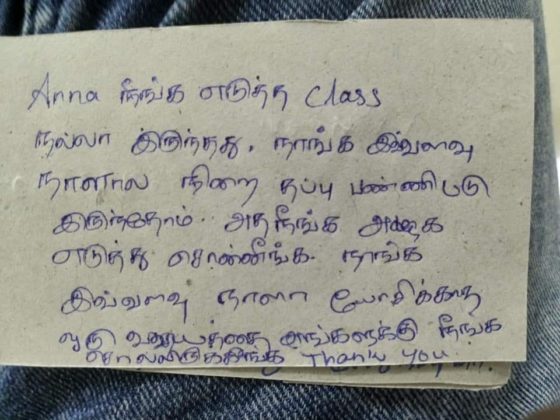 Anna நீங்க எடுத்த Class
நல்லா இருந்தது. நாங்க இவ்வளவு
நாளால நிறை தப்பு பண்ணிபடு
இருந்தோம். அத நீங்க அழக
எடுத்து சொன்னீங்க. நாங்க
இவ்வளவு நாளா யோசிக்காத
ஒரு விஷயத்தை எங்களுக்கு நீங்க
சொல்லிருக்கீங்க Thank you